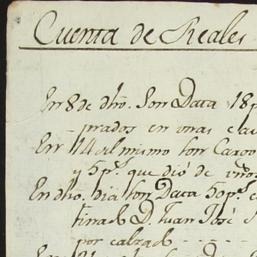 Cuenta de Reales
En 8 de dho. Son Data 18 p
prados en unas
En 14 al mismo son
y 5 ps. que dió de
En dho. dia son Data 50 ps.
tina de D. Juan José
por calzado